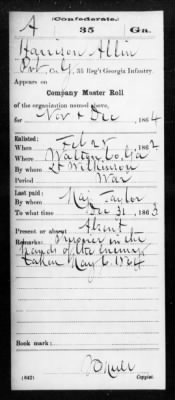 Confederate.
A 35 Ga.
Harrison Allin
Pvt, Co. G, 35 Reg't Georgia Infantry.
Appears on
Company Muster Roll
of the organization named above,
for Nov & Dec, 1864
Enlisted:
When Feb 25, 1862
Where Walton Co Ga
By whom Lt Wilkinson
Period War
Last paid:
By whom Maj Taylor
To what time Dec 31, 1863
Present or absent Absent
Remarks: Prisoner in the
hands of the enemy
taken May 6 1864
Book mark:
(642) Copyist.